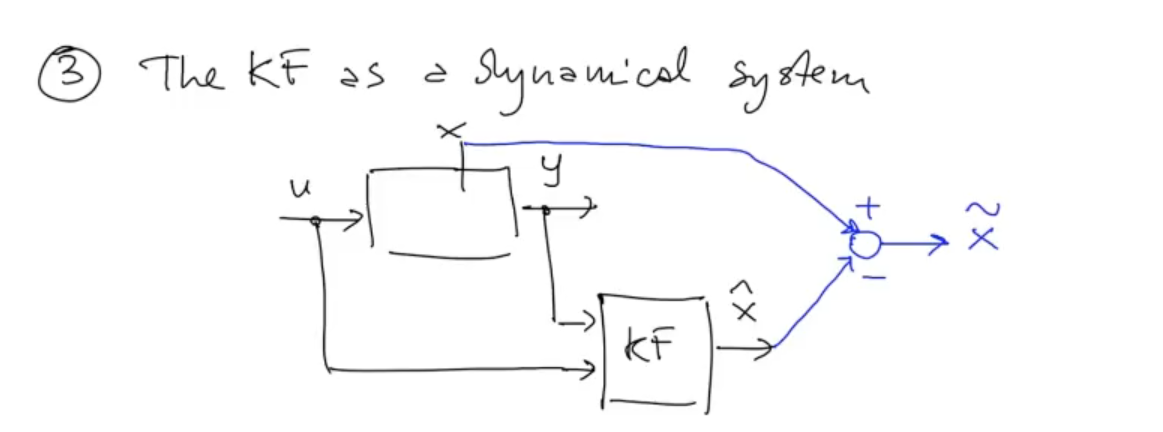 ③ The KF as a dynamical system
x
u
y
+
x̃
−
x̂
KF